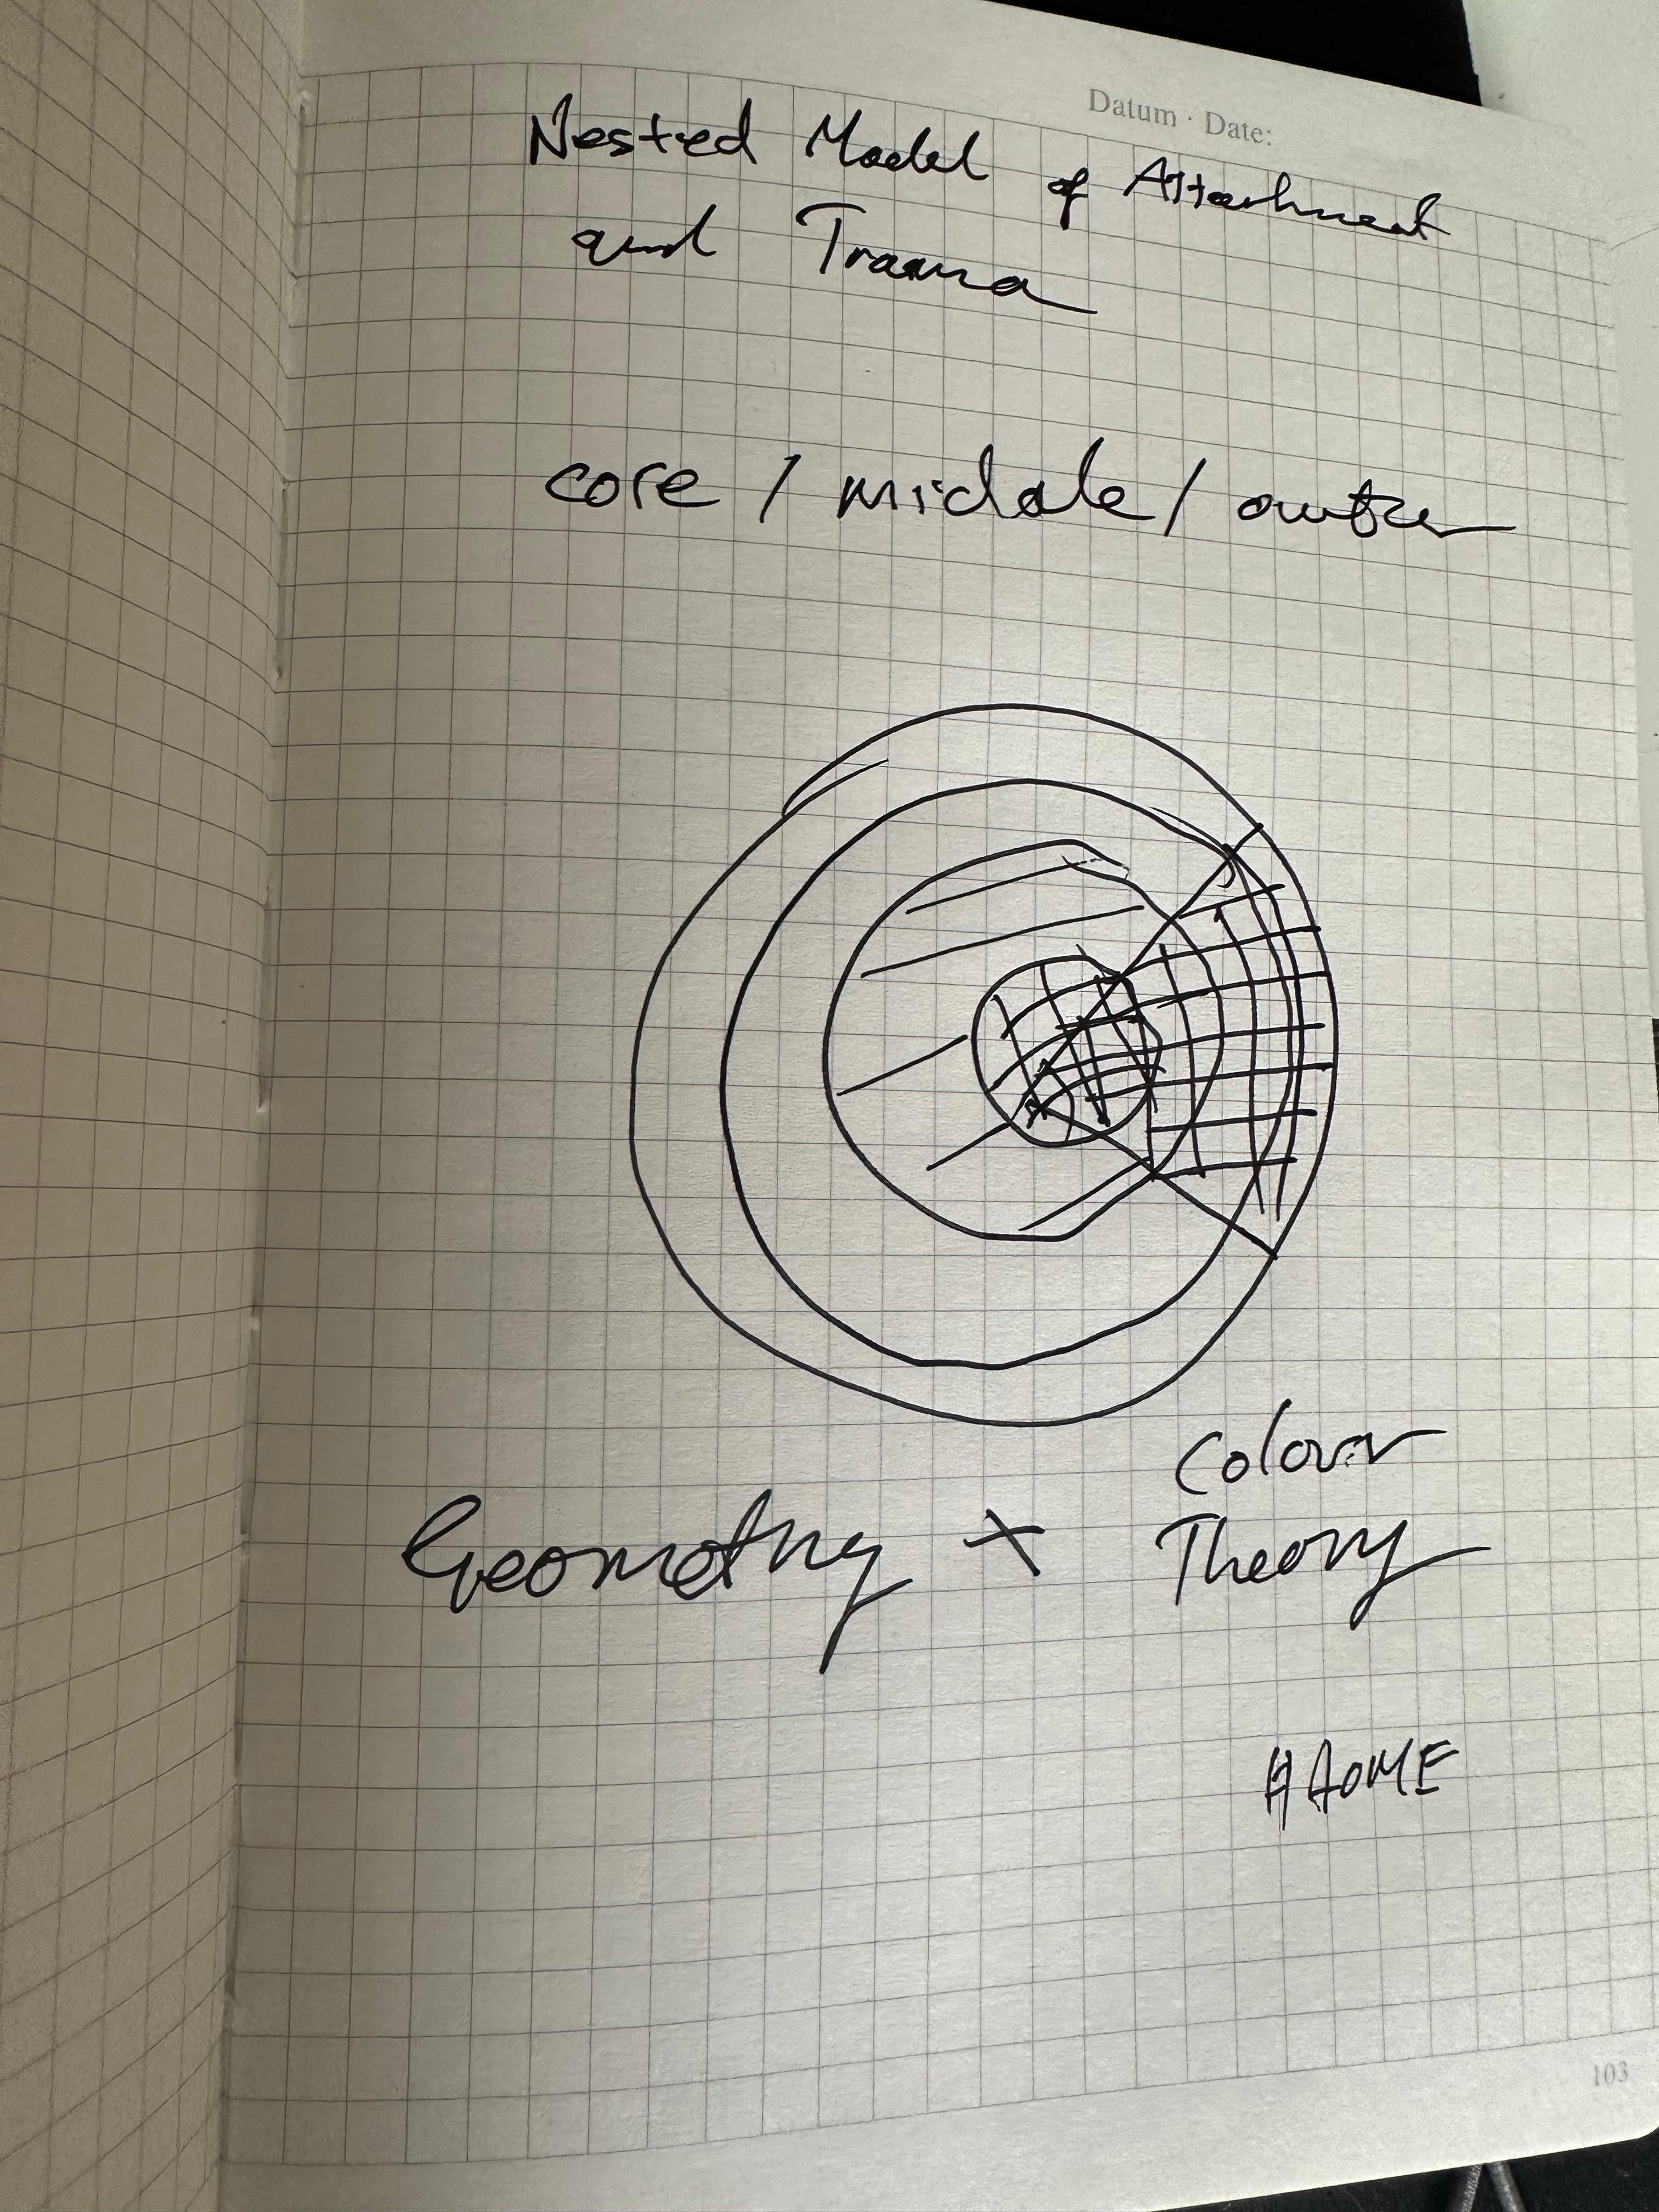 Datum · Date:
Nested Model of Attachment
and Trauma
core / middle / outer
Colour
Geometry × Theory
HOME
103